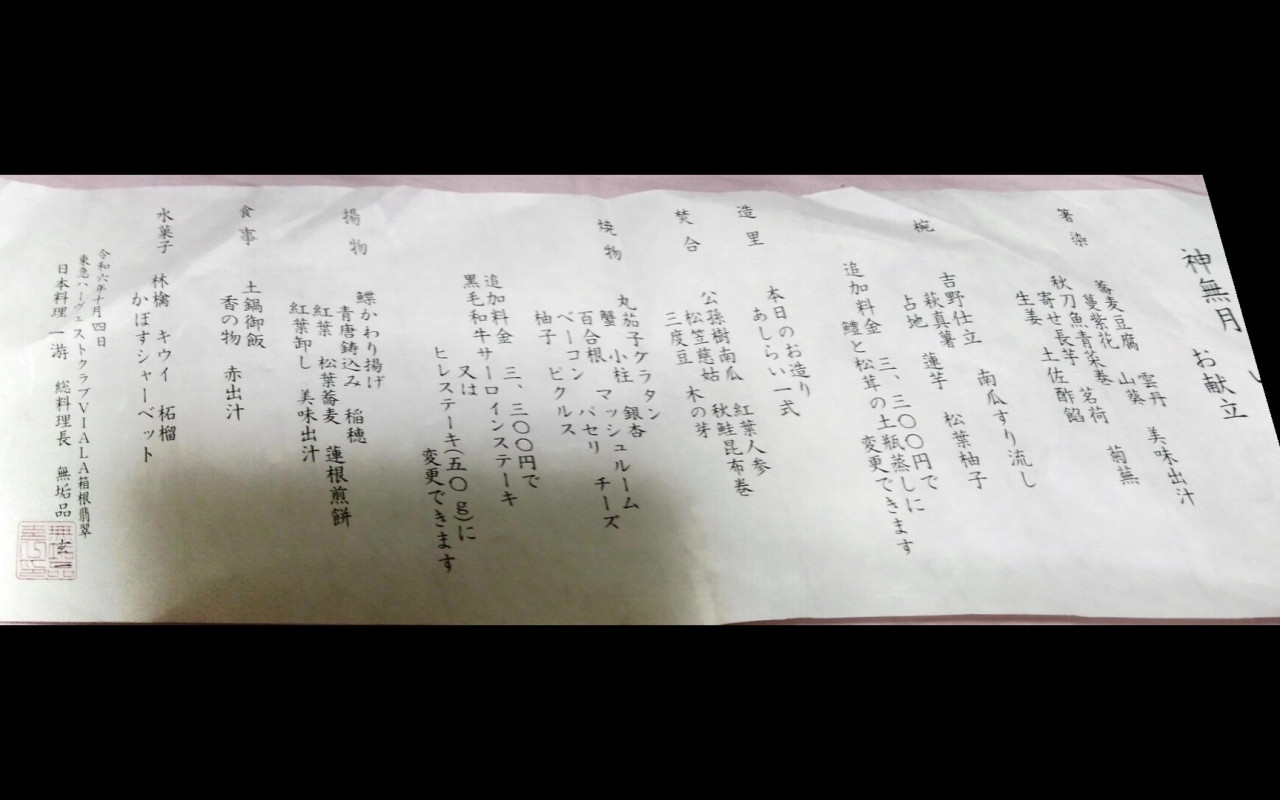 神無月 お献立
箸染
蕎麦豆腐 雲丹 美味出汁
蔓紫花 山葵
秋刀魚青菜巻 茗荷 菊蕪
寄せ長芋 土佐酢餡
生姜
椀
吉野仕立 南瓜すり流し
萩真薯 蓮芋 松葉柚子
占地
追加料金 三、三〇〇円で
鱧と松茸の土瓶蒸しに
変更できます
造里
本日のお造り
あしらい一式
焚合
公孫樹南瓜 紅葉人参
松笠慈姑 秋鮭昆布巻
三度豆 木の芽
焼物
丸茄子グラタン
蟹 小柱 銀杏
百合根 マッシュルーム
ベーコン パセリ チーズ
柚子 ピクルス
追加料金 三、三〇〇円で
黒毛和牛サーロインステーキ
又は
ヒレステーキ(五〇g)に
変更できます
揚物
鰈かわり揚げ
青唐鋳込み 稲穂
紅葉 松葉蕎麦 蓮根煎餅
紅葉卸し 美味出汁
食事
土鍋御飯
香の物 赤出汁
水菓子
林檎 キウイ 柘榴
かぼすシャーベット
令和六年十月四日
東急ハーヴェストクラブVIALA箱根翡翠
日本料理 一游 総料理長 無垢品 玄一